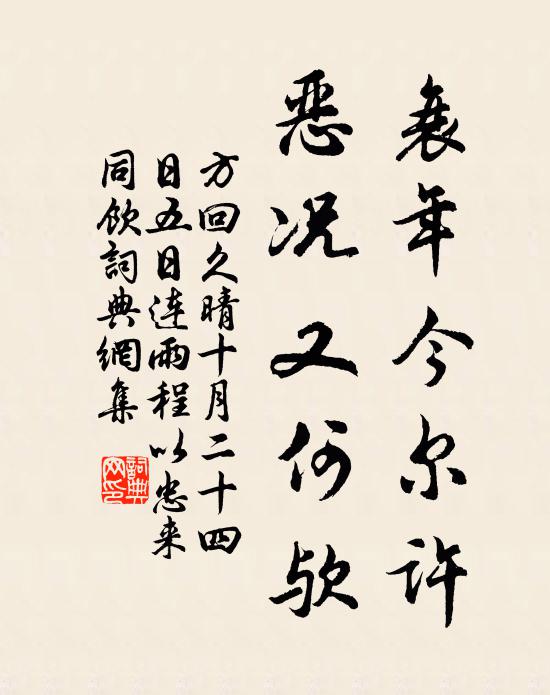 衰年今尔许
恶况又何欤
方回久晴十月二十四
日五日连雨程以忠来
同饮词典網集
詞典網印